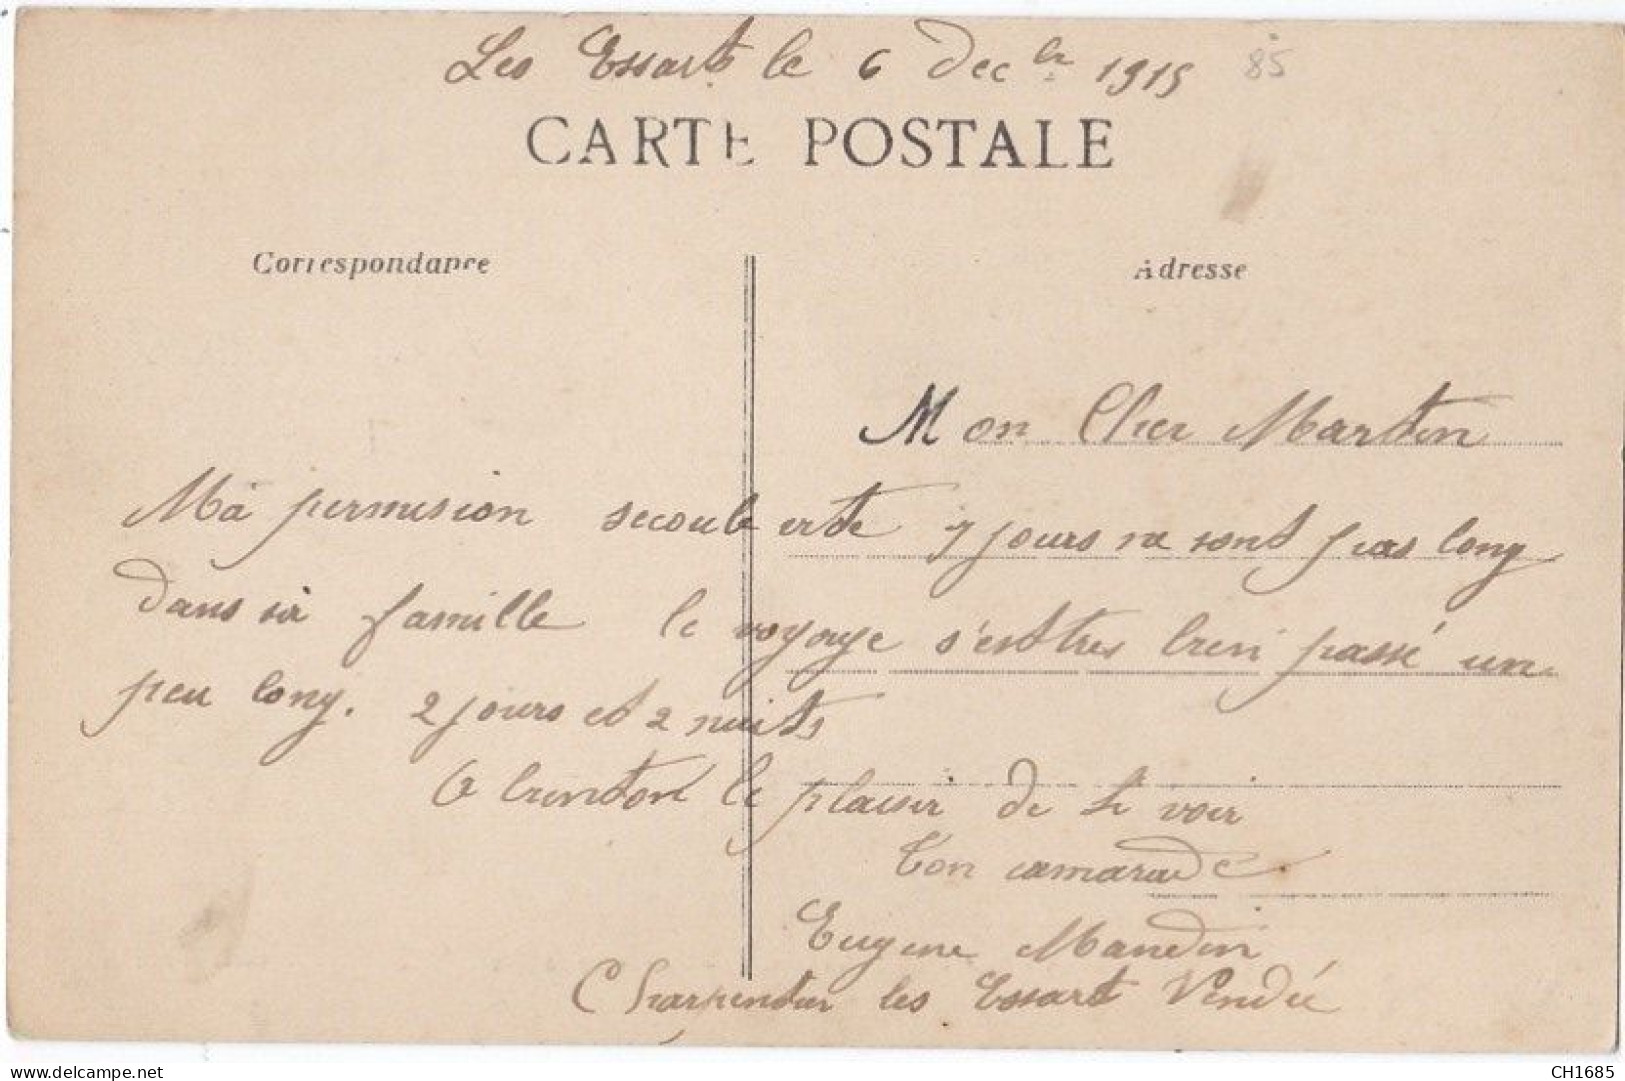 Les Essarts le 6 Dec br 1915 85
CARTE POSTALE
Correspondance
Adresse
Mon Cher Martin
Ma permision secoule vite 7 jours ne sont pas long
dans sa famille le voyage s'est tres bien passé un
peu long. 2 jours et 2 nuits
A bientot le plaisir de te voir
Ton camarade.
Eugene Mandin
Charpentier les Essarts Vendée
delcampe.net
CH1685